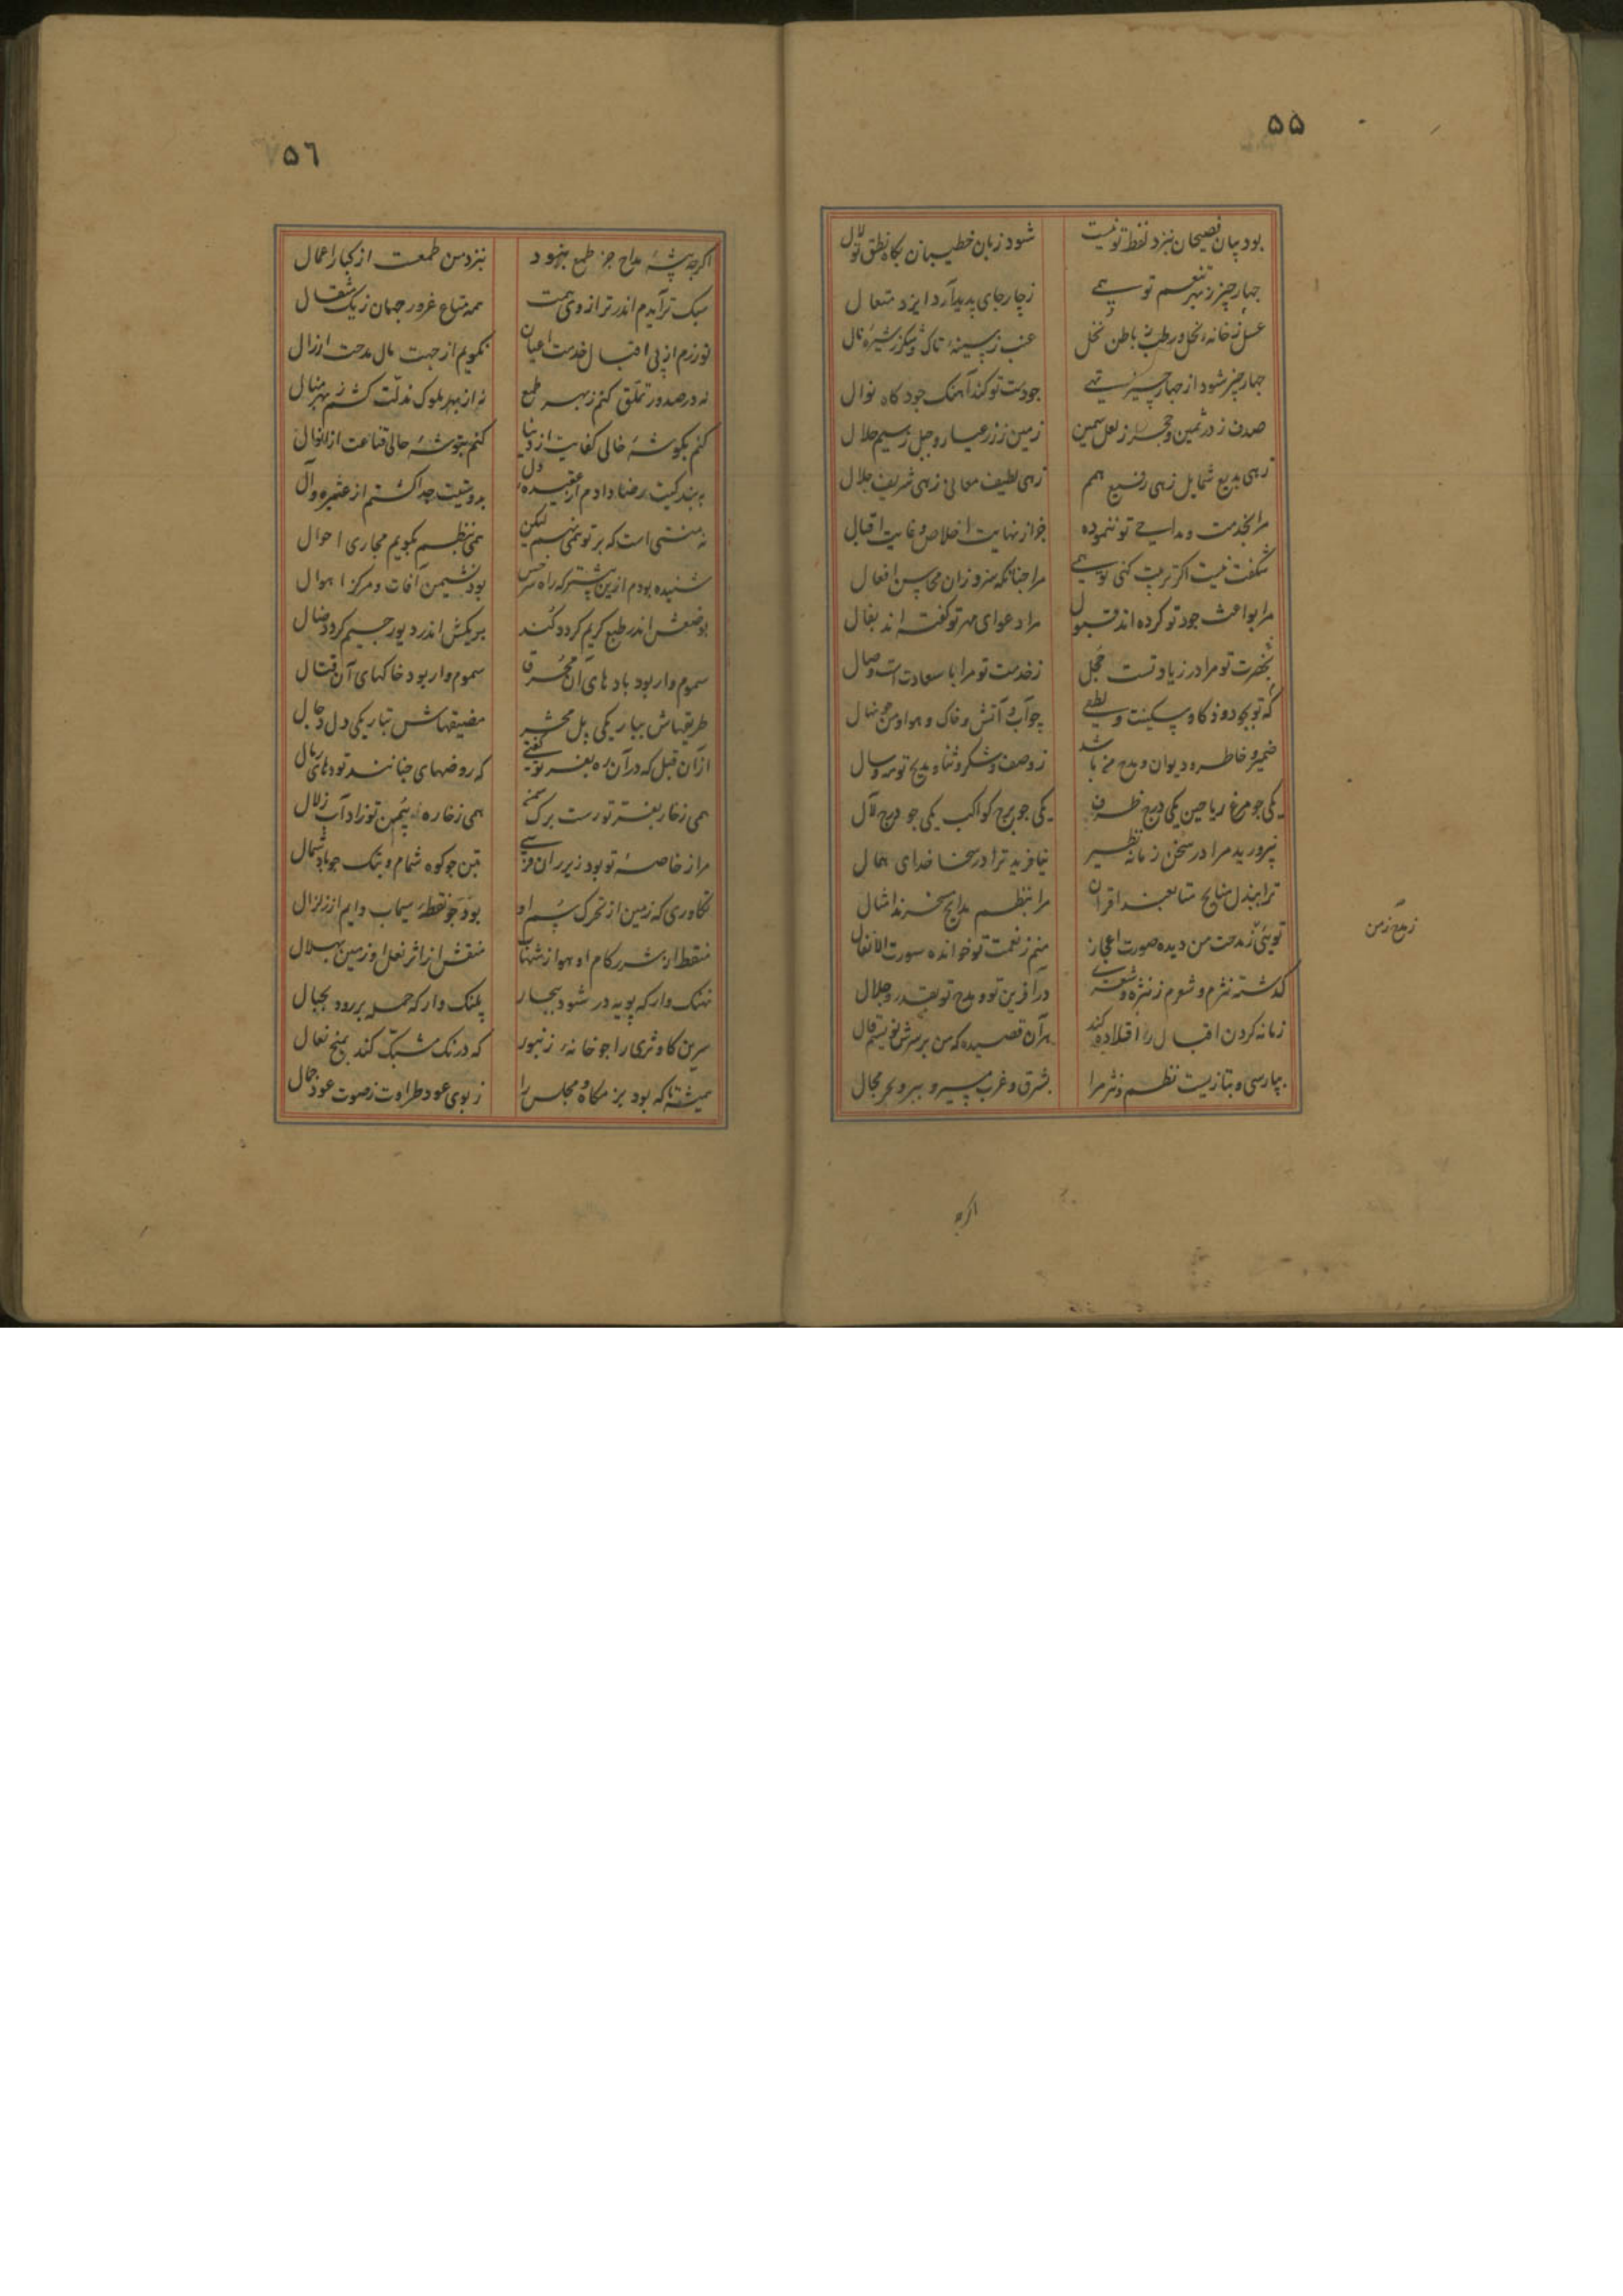 ۵۵
بود بیان فصیحان بنزد لفظ تو نیست
شود زبان خطیبان بگاه نطق تو لال
چهار چیز ز بهر تنعم تو همی
ز چار جای پدید آرد ایزد متعال
عسل ز خانه نحل و رطب ز باطن نخل
عنب ز سینهٔ تاک و شکر ز شیرهٔ نال
چهار چیز شود از چهار چیز تهی
چو دست تو کند آهنک جود کاه نوال
صدف ز در ثمین و حجر ز لعل سمین
زمین ز زر عیار و جبل ز سیم حلال
زهی بدیع شمایل زهی رفیع همم
زهی لطیف معالی زهی شریف جلال
مرا بخدمت و مداحی تو ننموده
جز از نهایت اخلاص و غایت اقبال
شکفت نیست اکر تربیت کنی تو همی
مرا جنانکه سزد زان محاسن افعال
مرا بواعث جود تو کرده اند قبول
مرا دعوای مهر تو کفته اند بفال
بحضرت تو مرا در زیادتست محل
ز خدمت تو مرا با سعادت است وصال
که تو بجود و ذکا و سکینت و لطفی
چو آب و آتش و خاک و هوا و من جو نهال
ضمیر و خاطر و دیوان و مدح من باشد
ز وصف و شکر و ثنا و مدیح تو مه و سال
یکی جو مرغ ریاحین یکی جو درج ظرف
یکی جو برج کواکب یکی جو درج لآل
نپرورید مرا در سخن زمانه نظیر
نیافرید ترا در سخا خدای همال
ترا ببذل منایح متابعند اقران
مرا بنظم مدایح مسخرند امثال
تویی ز مدحت من دیده صورت اعجاز
منم ز نعمت تو خوانده سورت الانفال
کذشته نثرم و شعرم ز نثره و شعری
در آفرین تو و مدح تو بقدر و جلال
زمانه کردن اقبال را قلاده کند
بر آن قصیده که من بر سرش نویسم قال
بپارسی و بتازیست نظم و نثر مرا
بشرق و غرب مسیر و ببر و بحر مجال
اکرجه
۵٦
اکرجه پیشهٔ مداح جز طمع نبود
بنزد من طمعست از کبار اعمال
سبک تر آیدم اندر ترازوی همت
همه متاع غرور جهان ز یک مثقال
نورزم از پی اقبال خدمت اعیان
نکویم از جهت مال مدحت ارذال
نه در صدور تملق کنم ز بهر طمع
نه از ملوک مذلت کشم ز بهر منال
کنم بکوشهٔ خالی کفایت از دنیا
کنم بتوشهٔ حالی قناعت از انوال
به بندکیت رضا دادم از عقیدهٔ دل
بدوستیت جدا کشتم از عشیره و آل
نه منتی است که بر تو نهم لیکن
همی بنظم بکویم مجاری احوال
شنیده بودم ازین پیشتر که راه سرخس
بود نشیمن آفات و مرکز اهوال
بوضعش اندر طبع کریم کردد کند
بریکش اندر دیو رجیم کردد ضال
سموم وار بود بادهای آن محرق
سموم وار بود خاکهای آن قتال
طریقهاش بباریکی پل محشر
مضیقهاش بتاریکی دل دجال
از آن قبل که در آن ره بفر تو کفتی
که روضهای جنانند تودهای رمال
همی ز خار بفر تو رست برک سمن
همی ز خاره بیمن تو زاد آب زلال
مرا ز خاصهٔ تو بود زیر ران فرسی
بتن جو کوه شمام و بتک جو باد شمال
تکاوری که زمین از تحرک سم او
بود جو نقطهٔ سیماب دایم از زلزال
منقط از شرر کام او هوا ز شهاب
منقش از اثر نعل او زمین بهلال
نهنک وار که پویه در شود ببحار
پلنک وار که حمله بر رود بجبال
سرین کاو ثری را جو خانهٔ زنبور
که درنک مشبک کند بمیخ نعال
همیشه تا که بود بزمکاه و مجلس را
ز بوی عود طراوت ز صوت عود جمال